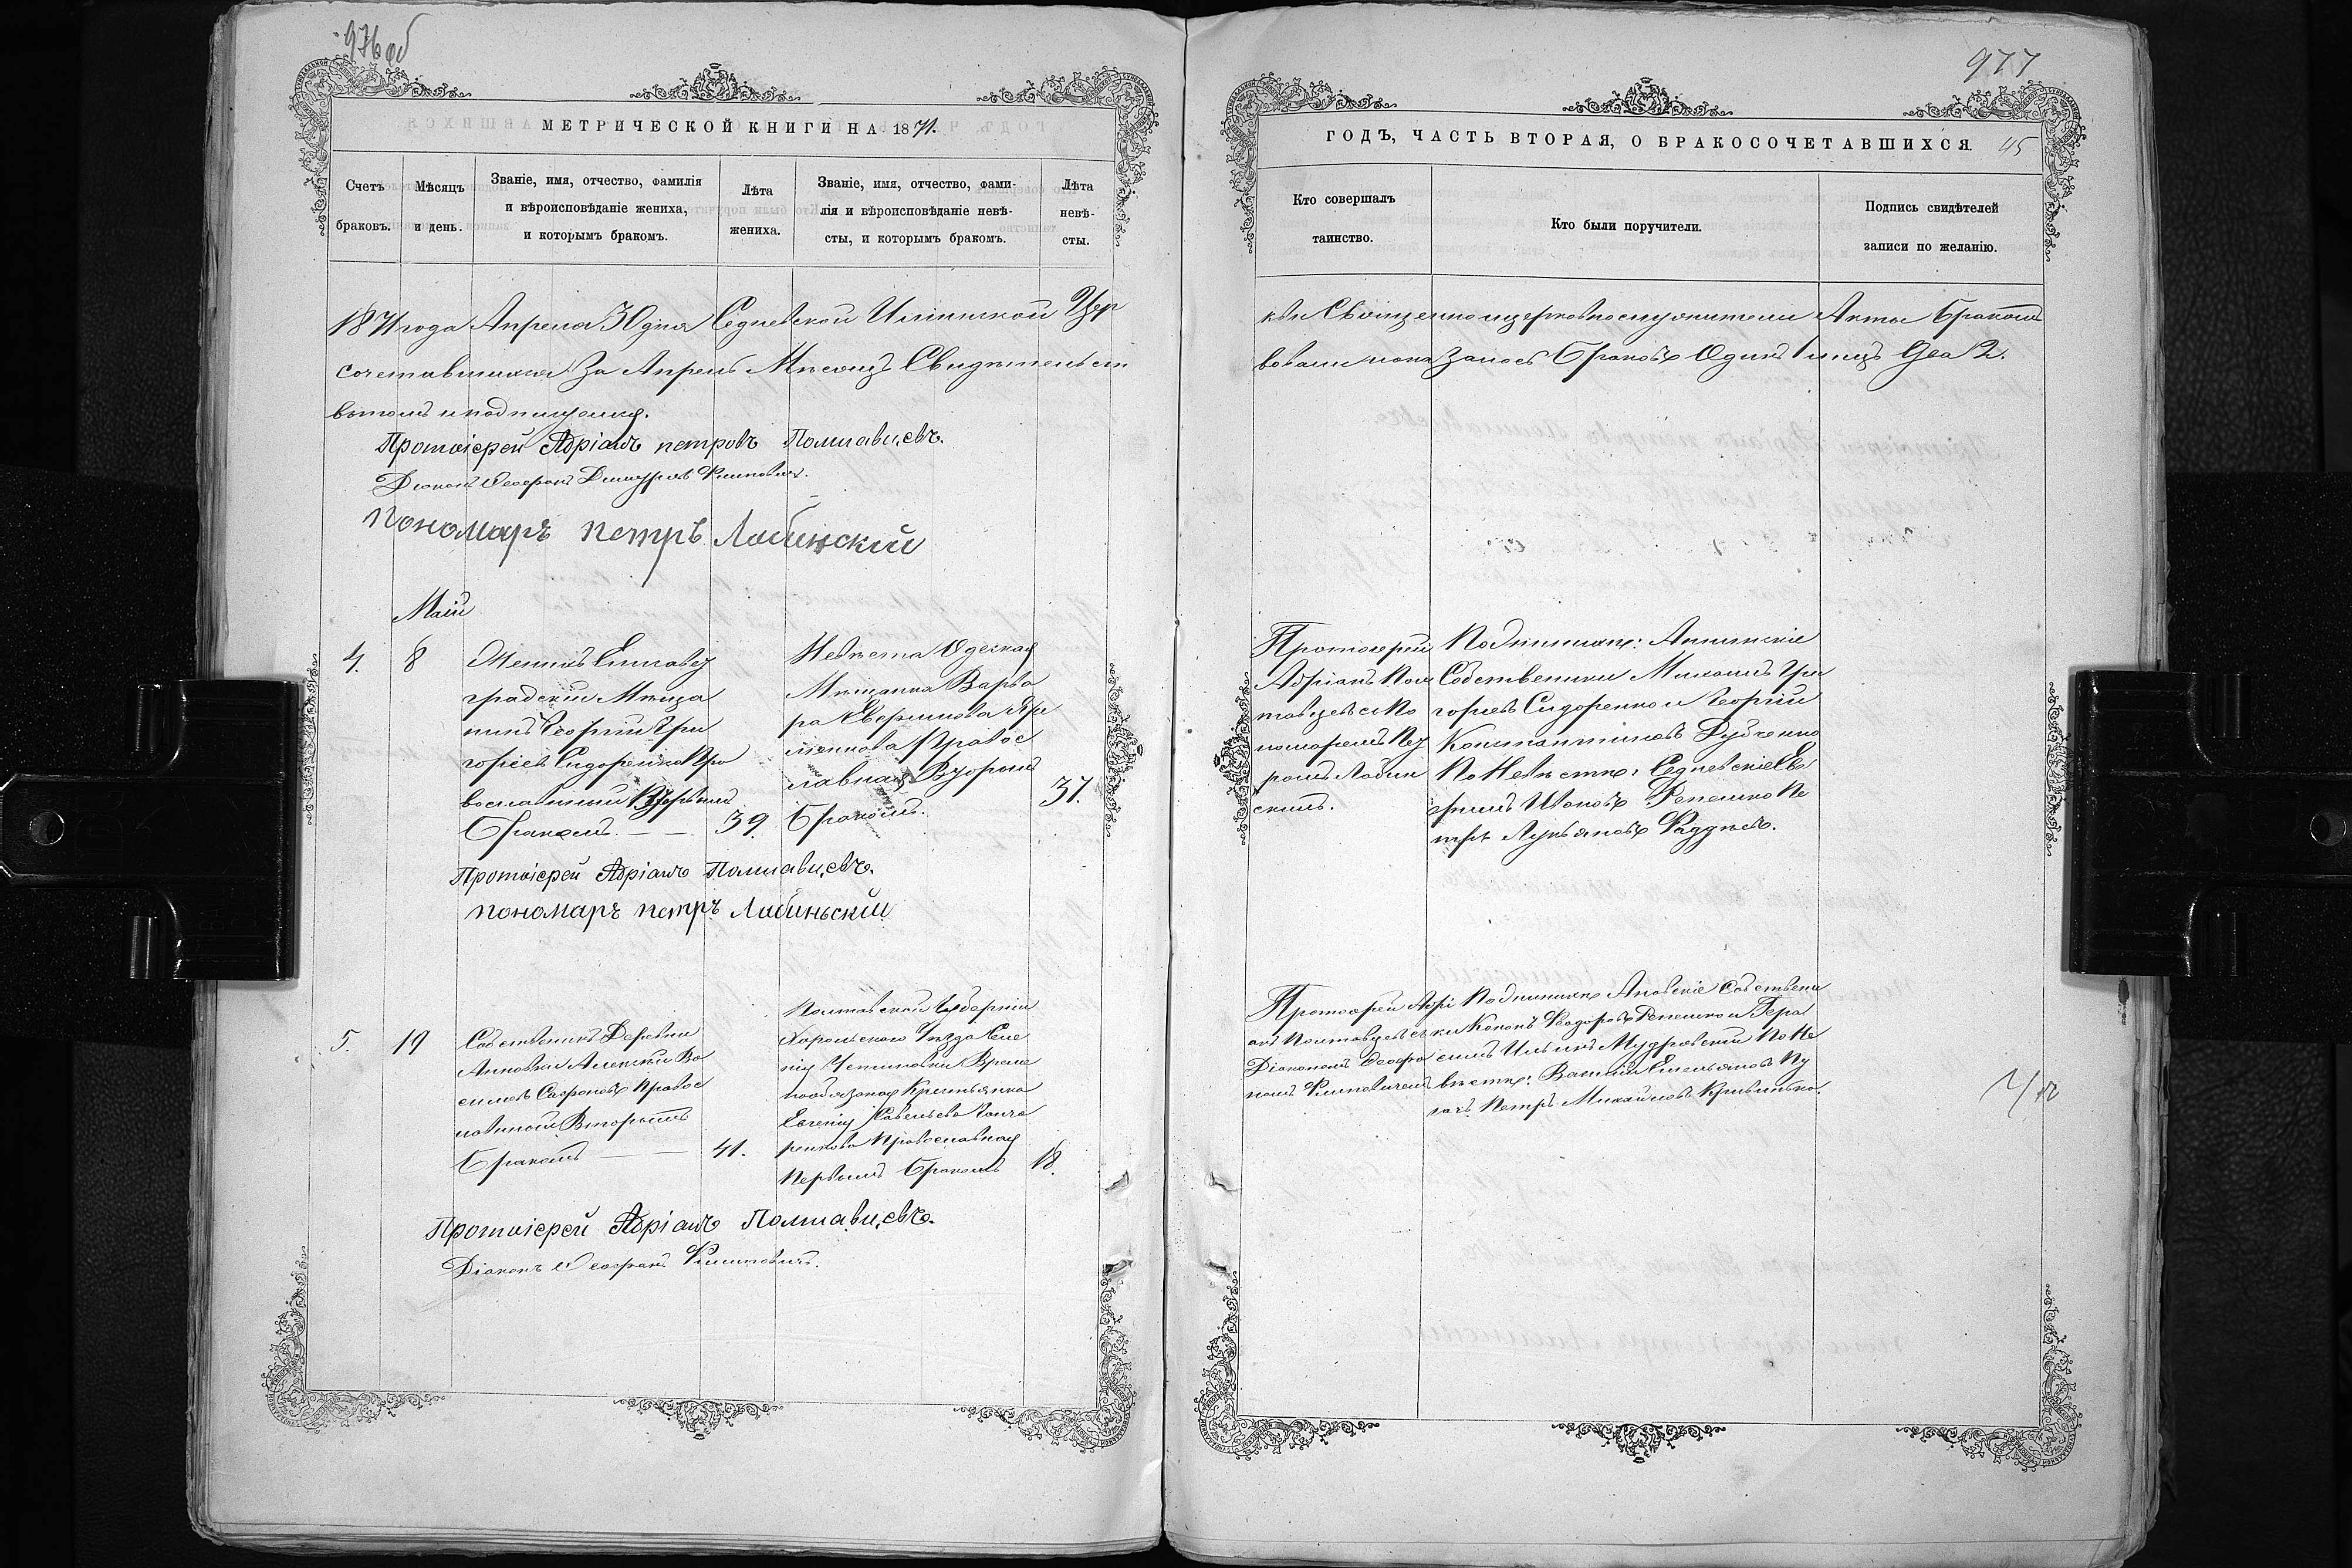 976 об
МЕТРИЧЕСКОЙ КНИГИ НА 1871.
Счетъ браковъ.
Мѣсяцъ и день.
Званіе, имя, отчество, фамилія
и вѣроисповѣданіе жениха,
и которымъ бракомъ.
Лѣта
жениха.
Званіе, имя, отчество, фами-
лія и вѣроисповѣданіе невѣ-
сты, и которымъ бракомъ.
Лѣта
невѣ-
сты.
1871 года Апреля 30 дня Седневской Цер
сочетавшихся За Апрель Мѣсяцъ Свидѣтельст
вуемъ и подписуемся.
Протоіерей Адріанъ петровъ Полтавцевъ.
Діаконъ Феофанъ Филиповичъ.
пономаръ петръ Лабинскій
Маій
4. 8
Женихъ Елисавет
градскій Мѣща
нинъ Георгій Гри
горіевъ Сидоренко Пра
вославный Вторымъ
Бракомъ. — — 39.
Невѣста Одеская
Мѣщанка Варва
ра
Правос
лавная, Вторымъ
Бракомъ.
37.
Протоіерей Адріанъ Полтавцевъ.
пономаръ петръ Лабиньскій
5. 19
Собственикъ Деревни
Анновки Алексѣй Ва
силевъ Сафоновъ Правос
лавный Вторымъ
Бракомъ — — 41.
Полтавской Губерніи
Хорольскаго Уѣзда Селе
нія Време
нообязаная Крестьянка
Евгенія Савельева Гонча
ренкова Православная
Первымъ Бракомъ 18.
Протоіерей Адріанъ Полтавцевъ.
Діаконъ Феофанъ Филиповичъ.
977
ГОДЪ, ЧАСТЬ ВТОРАЯ, О БРАКОСОЧЕТАВШИХСЯ. 45
Кто совершалъ
таинство.
Кто были поручители.
Подпись свидѣтелей
записи по желанію.
кви Священноцерковнослужители Акты Бракош
вовали Браковъ Одинъ 1 лицъ Два 2.
Протоіерей
Адріанъ Пол
тавцевъ съ По
номаремъ Пет
ромъ Лабин
скимъ.
По Женихѣ: Аннинскіе
Собственики Михаилъ Гри
горіевъ Сидоренко и Георгій
Константиновъ Дудченко
По Невѣстѣ: Седневскіе Ев
фимъ Ивановъ Репешко Пе
тръ Лукьяновъ Радунев.
Протоіерей Адрі
анъ Полтавцевъ съ
Діакономъ Феофа
номъ Филиповичемъ
По Женихѣ Ановскіе Собствени
ки Кононъ Федоровъ Репешко и Гера
симъ Ильинъ Мудровскій По Не
вѣстѣ: Василій Емельяновъ Пу
гачъ Петръ Михайловъ Кривинько.